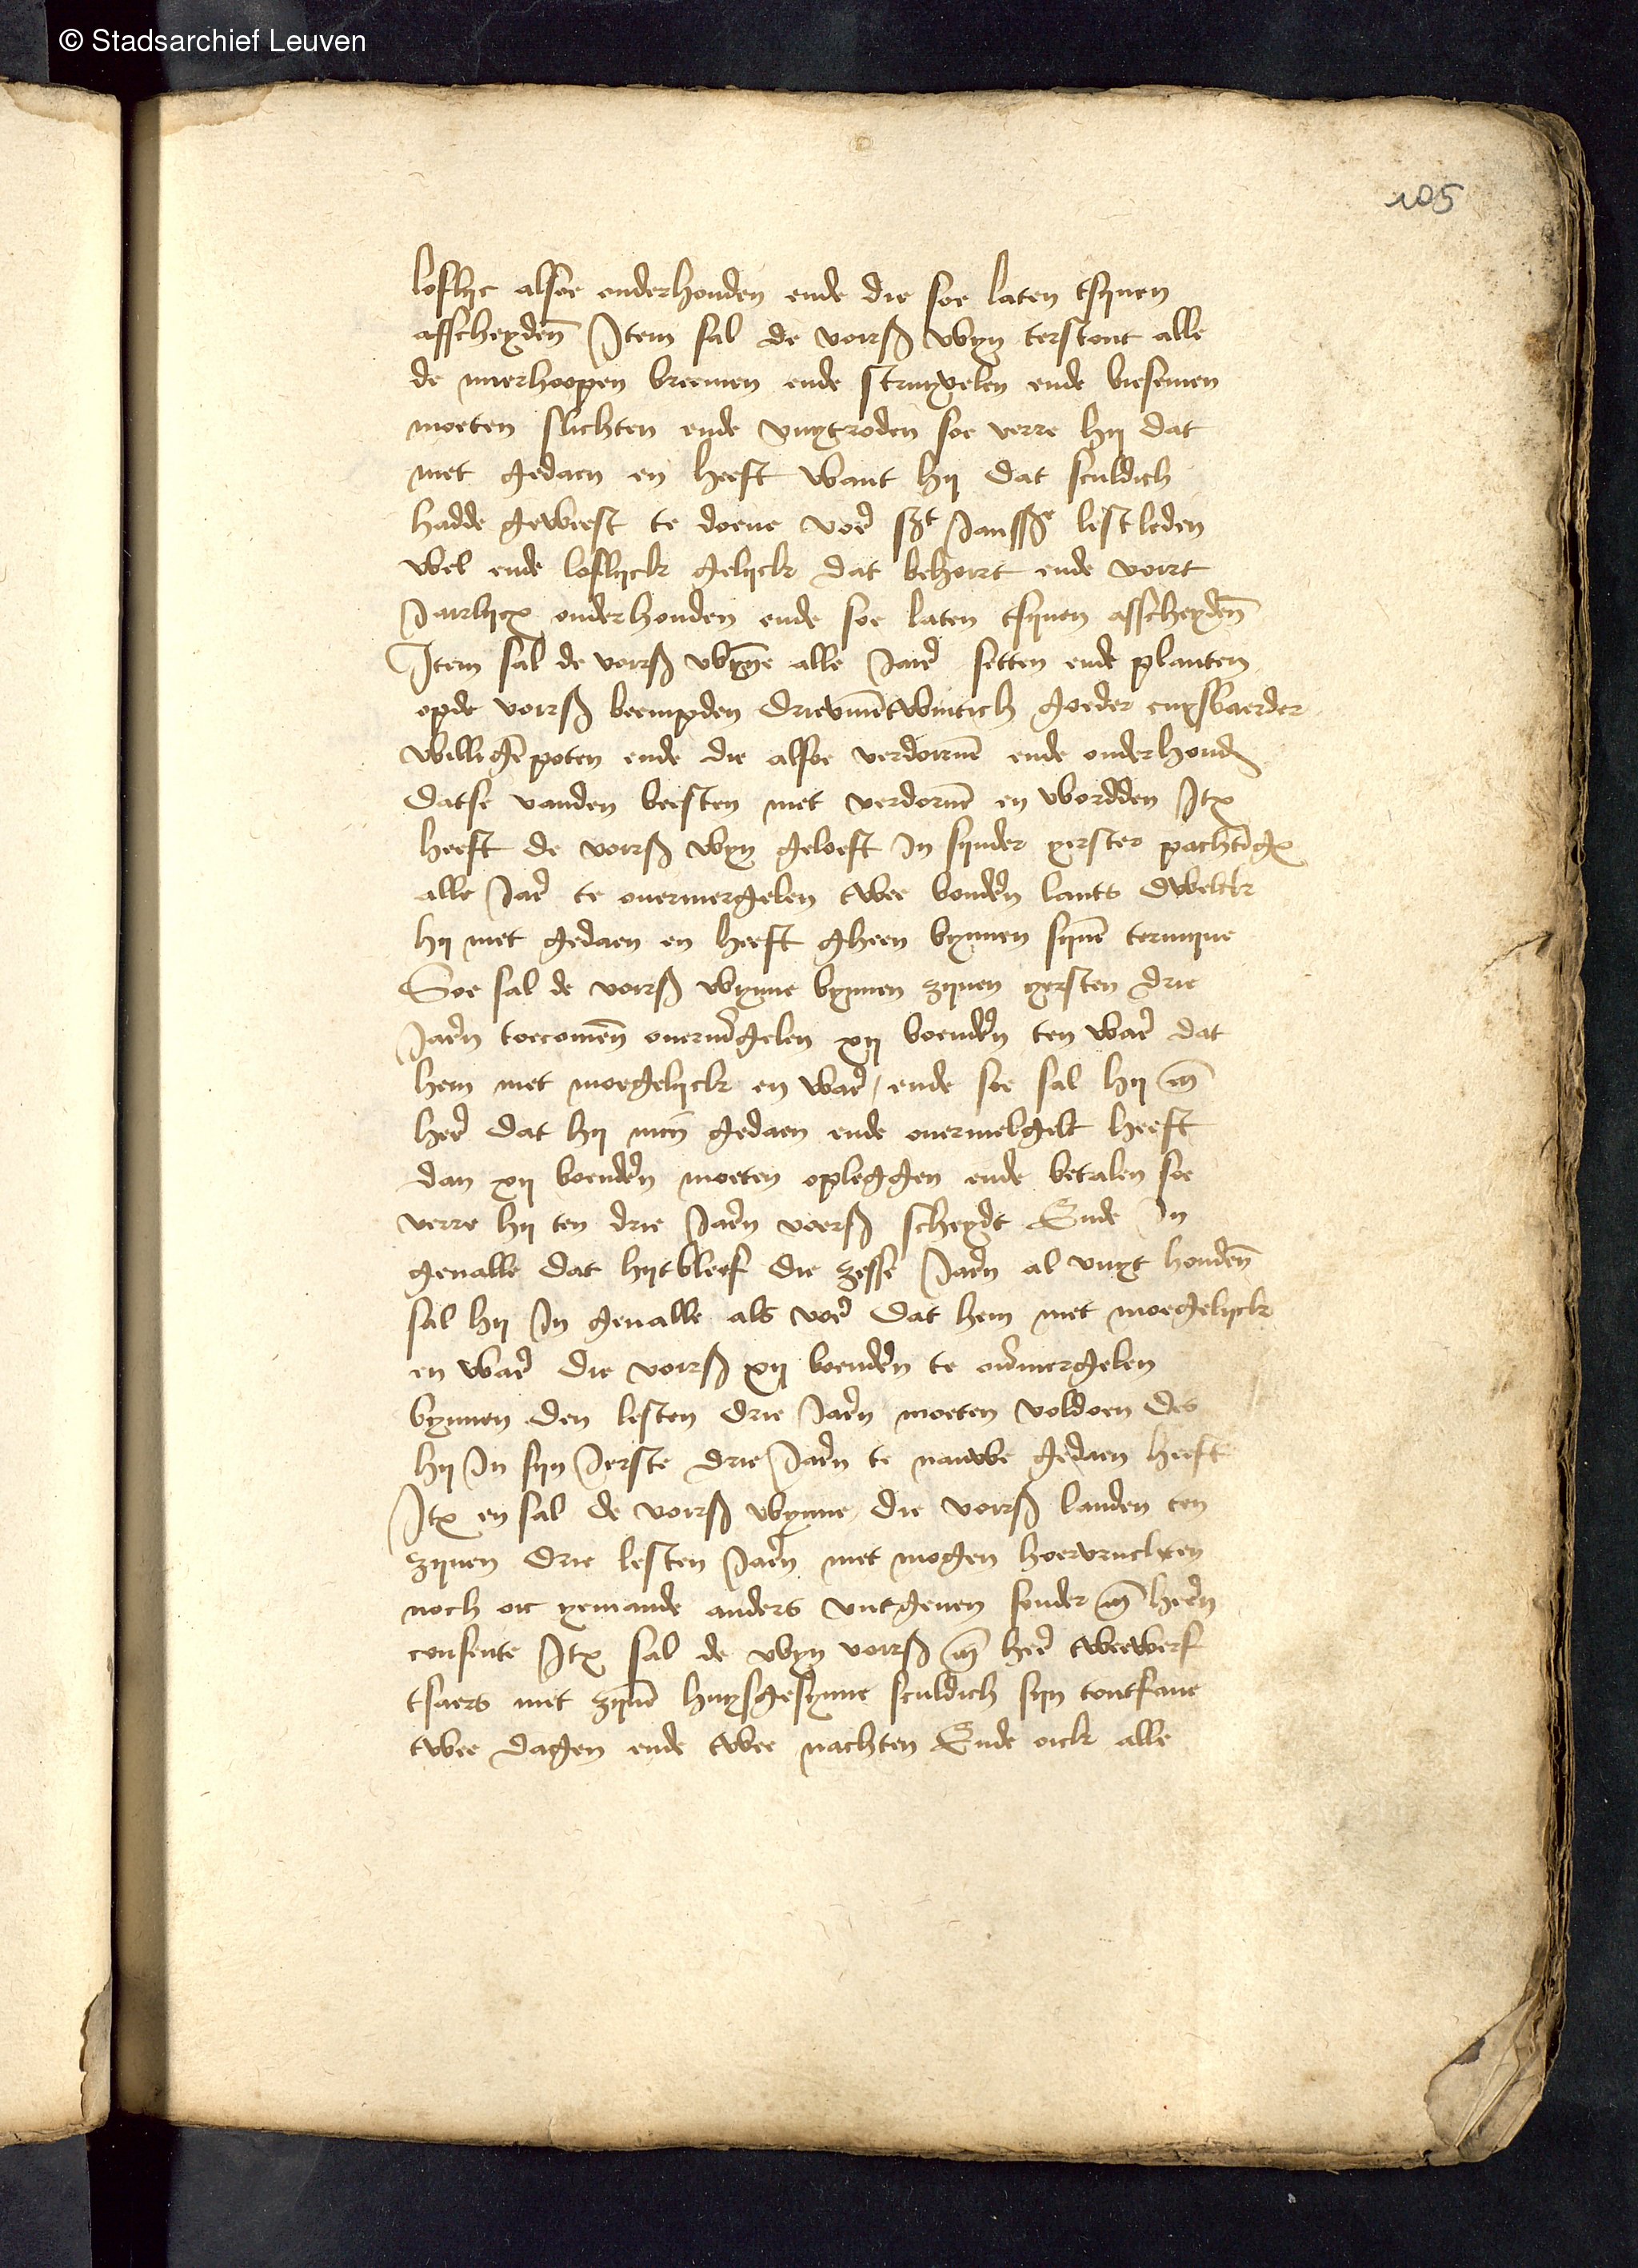 © Stadsarchief Leuven
105
loflijc alsoe onderhouden ende die soe laten tsijnen
affscheyden̄ Item sal de voirs wyn terstont alle
de mierhoopen breemen ende struyvelen ende biesemen
moeten slichten ende vuytroden soe verre hij dat
niet gedaen en heeft want hij dat sculdich
hadde geweest te doene voer sint Janssße lestleden
wel ende loflijck gelijck dat behoirt ende voirt
Jairlijcx onderhouden ende soe laten tsijnen affscheyden̄
Item sal de voirs wyn̄e alle Jaer setten ende planten
opde voirs beempden drievniētwintich goeder cuysbaerder
willigē poten ende die alsoe verdoirnē ende onderhoudē
datse vanden beesten niet verdornē en wordden Itē
heeft de voirs wyn geloeft in sijnder yerster pachtīgē
alle Jaer te overmergelen twee bonderen lants dwelck
hij niet gedaen en heeft gheen bynnen sijnē termyne
Soe sal de voirs wynne bynnen zijnen yersten drie
Jaeren toecomēn overmergelen xij boenderen ten waer dat
hem niet moegelijck en waer / ende soe sal hij m̄
heer dat hij min̄ gedaen ende overmelgelt heeft
dan xij boenderen moeten opleggen ende betalen soe
verre hij ten drie Jaeren voers scheydt Ende In
gevalle dat hijt bleef die zesse Jaeren al vuyt houden̄
sal hij In gevalle als voer dat hem niet moegelijck
en waer die voirs xij boenderen te overmergelen
bynnen den lesten drie Jaeren moeten voldoen des
hij In sijn Ierste drie Jaeren te nauwe gedaen heeft
Itē en sal de voirs wynne die voirs landen ten
zijnen drie lesten Jaeren niet mogen hoervruchten
noch oic yemande anders vutgeven sonder m̄ heren
consente Itē sal de wyn voirs m̄ heer tweewerf
tsaers met zijnē huysgesynne sculdich sijn tontfane
twee dagen ende twee nachten Ende oick alle